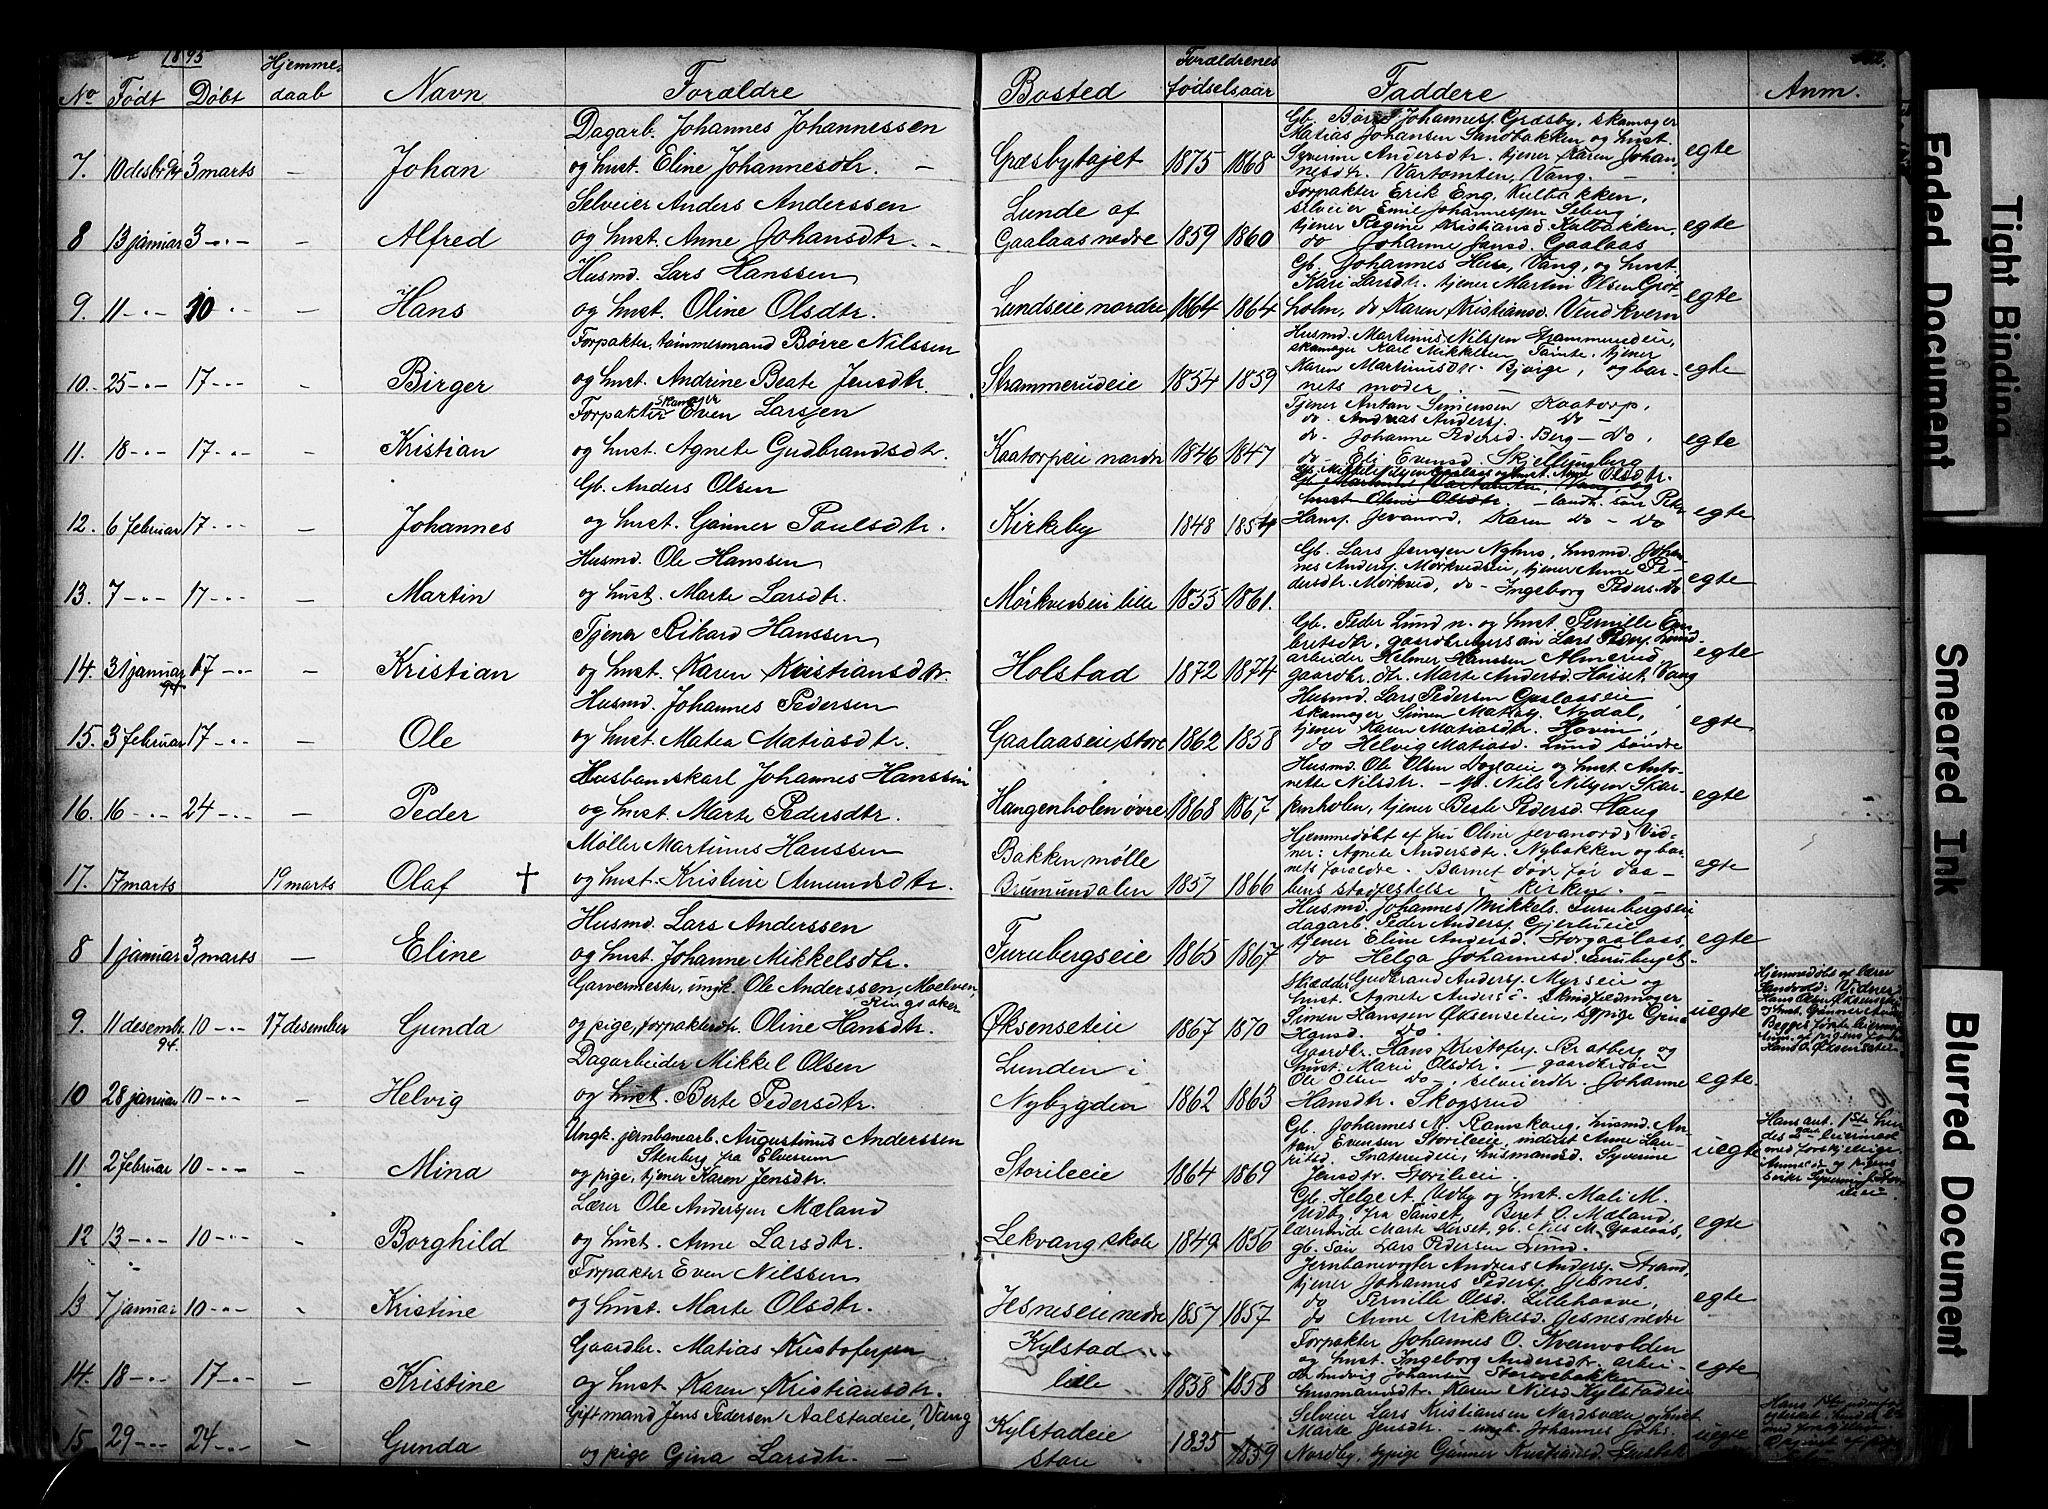 1895
No Født Døbt Hjemme-daab Navn Forældre Bosted Forældrenes fødselsaar Faddere Anm.
7. 10 desbr 94 3 marts - Johan
Dagarb. Johannes Johannessen
og hust. Eline Johannesdtr. -
Græsbytajet 1875 1868
Gb. Børre Johannesj. Græsby, skomager
Matias Johansen Sandbakken og hust.
Syverine Andersdtr. tjener Karen Johan
nesdtr. Vartomten, Vang. -
egte
8 13 januar 3 -"- - Alfred
Selveier Anders Anderssen
og hust. Anne Johansdtr. -
Lunde af
Gaalaas nedre 1859 1860
Forpakter Erik Eng, Kulbakken,
selveier Emil Johannesjen Seberg
tjener Regine Kristiansd. Kalbakken,
do Johanne Jensd. Gaalaas
egte
9. 11 -"- 10 -"- - Hans
Husmd. Lars Hanssen
og hust. Oline Olsdtr.
Lundseie nordre 1864 1864
Gb. Johannes Huse, Vang, og hust.
Kari Larsdtr. tjener Martin Olsen Grøt
holm, do Karen Kristiansd. Vendkvern
egte
10. 25 -"- 17 -"- - Birger
Forpakter, tømmermand Børre Nilssen
og hust. Andrine Beate Jensdtr.
Strammerudeie 1854 1859
Husmd. Martinus Nilsjen Strammerudeie,
skomager Karl Mikkelsen Tainte, tjener
Karen Martinusdtr. Bjørge, og bar-
nets moder
egte
11. 18 -"- 17 -"- - Kristian
Forpakter skomager Even Larsjen
og hust. Agnete Gudbrandsdtr.
Kaatorpeie nordre 1846 1847
Tjener Antan Simensen Kaatorp,
do. Andreas Andersj. Do -
do. Johanne Pedersd. Berg - Do,
do - Eli Evensd. Skjellungberg
egte
12. 6 februar 17 -"- - Johannes
Gb. Anders Olsen
og hust. Gønner Paulsdtr.
Kirkeby 1848 1854
hust Oline Olsdtr.
Hansj. Jevanord, Karen Do - Do
egte
13. 7 -"- 17 -"- - Martin
Husmd. Ole Hanssen
og hust. Marte Larsdtr.
Mørkvedseie lille 1855 1861.
Gb. Lars Jensjen Nyhus, husmd. Johan
nes Andersj. Mørkvedseie, tjener Anne Pe-
dersdtr. Mørkved, do - Ingeborg Peders. Do
egte
14. 31 januar 94 17 -"- - Kristian
Tjener Rikard Hanssen
og hust. Karen Kristiansdtr.
Holstad 1872 1874
Gb. Peder Lund n. og hust Pernille En-
bretsdtr, gaardbrugersøn Lars Pedersj. Lund
arbeider Helmer Hanssen Almerud,
gaardbr. dtr. Marte Andersd. Høiset, Vang
egte
15. 3 februar 17 -"- - Ole
Husmd. Johannes Pedersen
og hust. Matea Matiasdtr.
Gaalaaseie, store 1862 1858
Husmd. Lars Pedersen Gaalaaseie
skomager Simen Matiasj. Nydal,
tjener Karen Matiasdtr. Hovin,
do Helvig Matiasd. Lund søndre
egte
16. 16 -"- 24 -"- - Peder
Husbondskarl Johannes Hanssen
og hust. Marte Pedersdtr.
Haugenholen øvre 1868 1867.
Husmd. Ole Olsen Dogloeie og hust. Anto-
nette Nilsdtr. - Nils Nilsjen Skar-
kenholen, tjener Berte Pedersd. Haug
egte
17. 17 marts 19 marts Olaf †
Møller Martinus Hanssen
og hust. Kristine Amundsdtr.
Bakken mølle
Brumundalen 1857 1866
Hjemmedøbt af fru Oline Jevanord; Vid-
ner: Agnete Andersdtr. Nybakken og bar-
nets forældre. Barnet døde før daa-
bens stadfæstelse i kirken. -
egte
8 1 januar 3 marts - Eline
Husmd. Lars Anderssen
og hust. Johanne Mikkelsdtr.
Furubergseie 1865 1867
Husmd. Johannes Mikkels. Furubergseie
dagarb. Peder Andersj. Gjerlueie
tjener Eline Andersd. Storgaalaas,
do Helga Johannesd. Furuberget -
egte
9. 11 desembr 94. 10 -"- 17 desember Gunda
Garvermestr, ungk. Ole Anderssen, Moelven,
Ringsaker
og pige, forpakterdtr. Oline Hansdtr.
Øksenseteie 1867 1870
Skrædder Gudbrand Andersj. Myrseie og
hust. Agnete Andersd. Skindfeldmager
Simen Hansjen Øksenseteie, sypige
Hansd. Do -
uegte
Hjemmedøbt af lærer
Sandvold. Vidner:
Hans Olsen Øksenseteie
og hust. Gønner
Begges første leiermaal
Anm. af pigens fader
Hans O. Øksenseteie
10 28 januar 10 -"- - Helvig
Dagarbeider Mikkel Olsen
og hust. Berte Pedersdtr.
Lunden i
Nybygden 1862 1863
Gaardbr. Hans Kristofersj. Bratberg og
hust. Mari Olsdtr. - gaardbrsøn
Ole Olsen Do -, selveierdtr. Johanne
Hansdtr. Skogsrud
egte.
11. 2 februar 10 -"- - Mina
Ungk. jernbanearb. Augustinus Anderssen
Stenberg fra Elverum
og pige, tjener Karen Jensdtr.
Storileeie 1864 1869
Gb. Johannes M. Ramskaug, husmd. An-
ton Evensen Storileeie, inderst Anne Lau-
ritsd. Snaterudeie, husmandsd. Syverine
Jensdtr. Storileeie
uegte
Hans ant. 1ste hen
des 2det leiermaal
med forskjellige.
Anmeldt af pigens
12 13 -"- 10 -"- - Borghild
Lærer Ole Andersjen Mæland
og hust. Anne Larsdtr.
Lekvang skole 1849 1856
Gb. Helge A. Udby og hust. Mali M.
Udby fra Tønset, Beret O. Mæland,
lærerinde Marte Kvrset, gb. Nils M. Gaalaas,
gb. søn Lars Pedersen Lund.
egte
13 7 januar 10 -"- - Kristine
Forpakter Even Nilssen
og hust. Marte Olsdtr.
Jesneseie nedre 1857 1857
Jernbanevogter Andreas Andersj. Strand,
tjener Johannes Pedersj. Jesnes,
do Pernille Olsd. Lillehaave,
do Anne Mikkelsd. Jesnes nedre
egte
14. 18 -"- 17 -"- - Kristine
Gaardbr. Matias Kristofersjen
og hust. Karen Kristiansdtr.
Kylstad
lille 1858 1858
Forpakter Johannes O. Kvenvolden
og hust. Ingeborg Andersdtr. arbei-
der Ludvig Johansen Storvebakken
husmandsdtr. Karen Nilsd. Kylstadeie
egte
15. 29 -"- 24 -"- - Gunda
Gift mand Jens Pedersen Aalstadeie, Vang
og pige Gina Larsdtr. -
Kylstadeie
store 1835 1859
Selveier Lars Kristiansen Nordsveen og hust
Marte Jensdtr. - ungk. Johannes Johs.
Nordby, sypige Gønner Kristiansd.
uegte
Tight Binding
Faded Document
Smeared Ink
Blurred Document